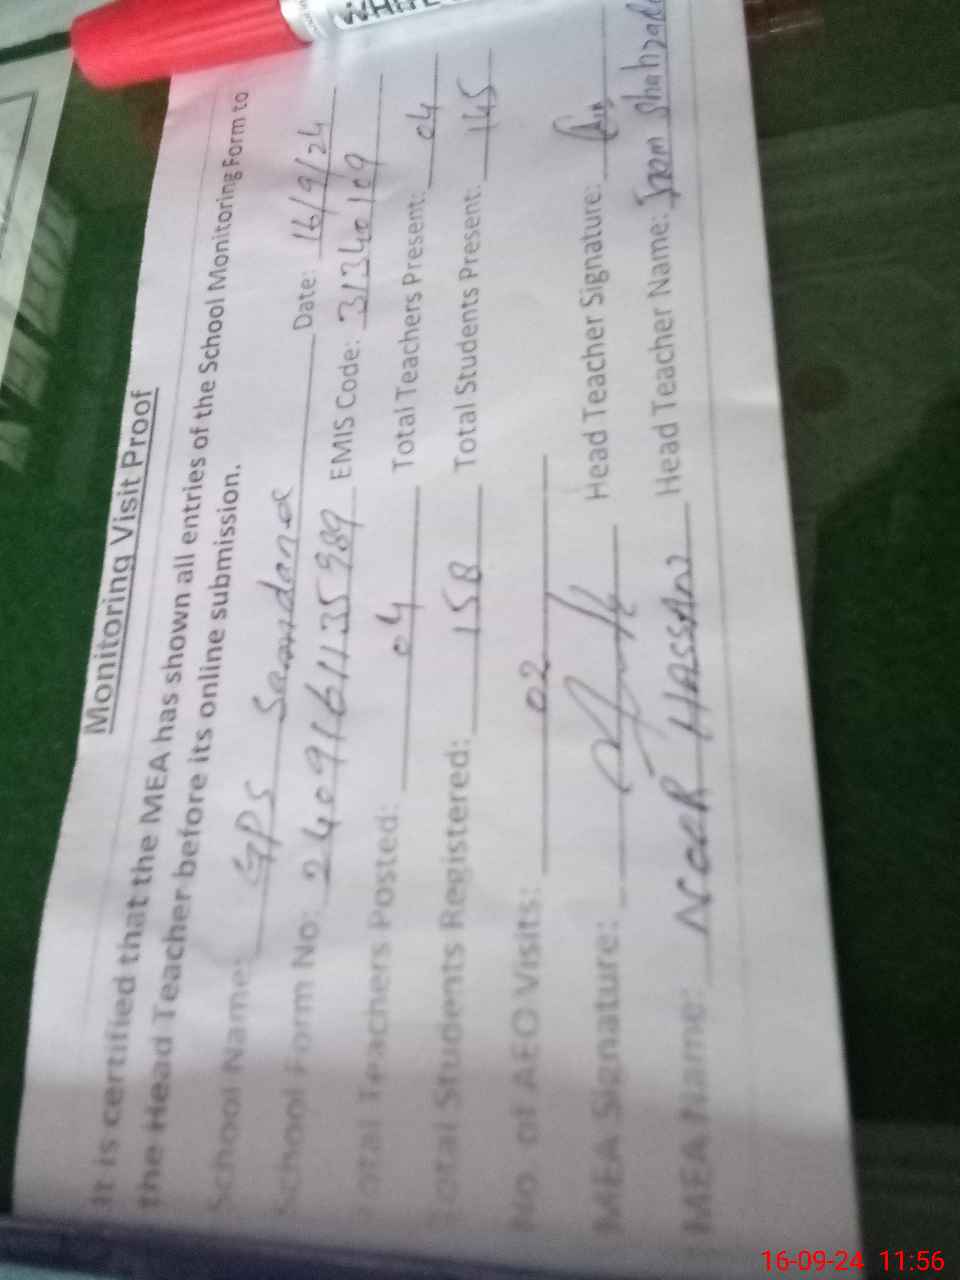 WHITE
Monitoring Visit Proof
It is certified that the MEA has shown all entries of the School Monitoring Form to
the Head Teacher before its online submission.
School Name: GPS Samdana Date: 16/9/24
School Form No: 2409161135989 EMIS Code: 31340109
Total Teachers Posted: 04 Total Teachers Present: 04
Total Students Registered: 158 Total Students Present: 145
No. of AEO Visits: 02
MEA Signature: Head Teacher Signature:
MEA Name: HASSAN Head Teacher Name: Shahzadi
16-09-24 11:56